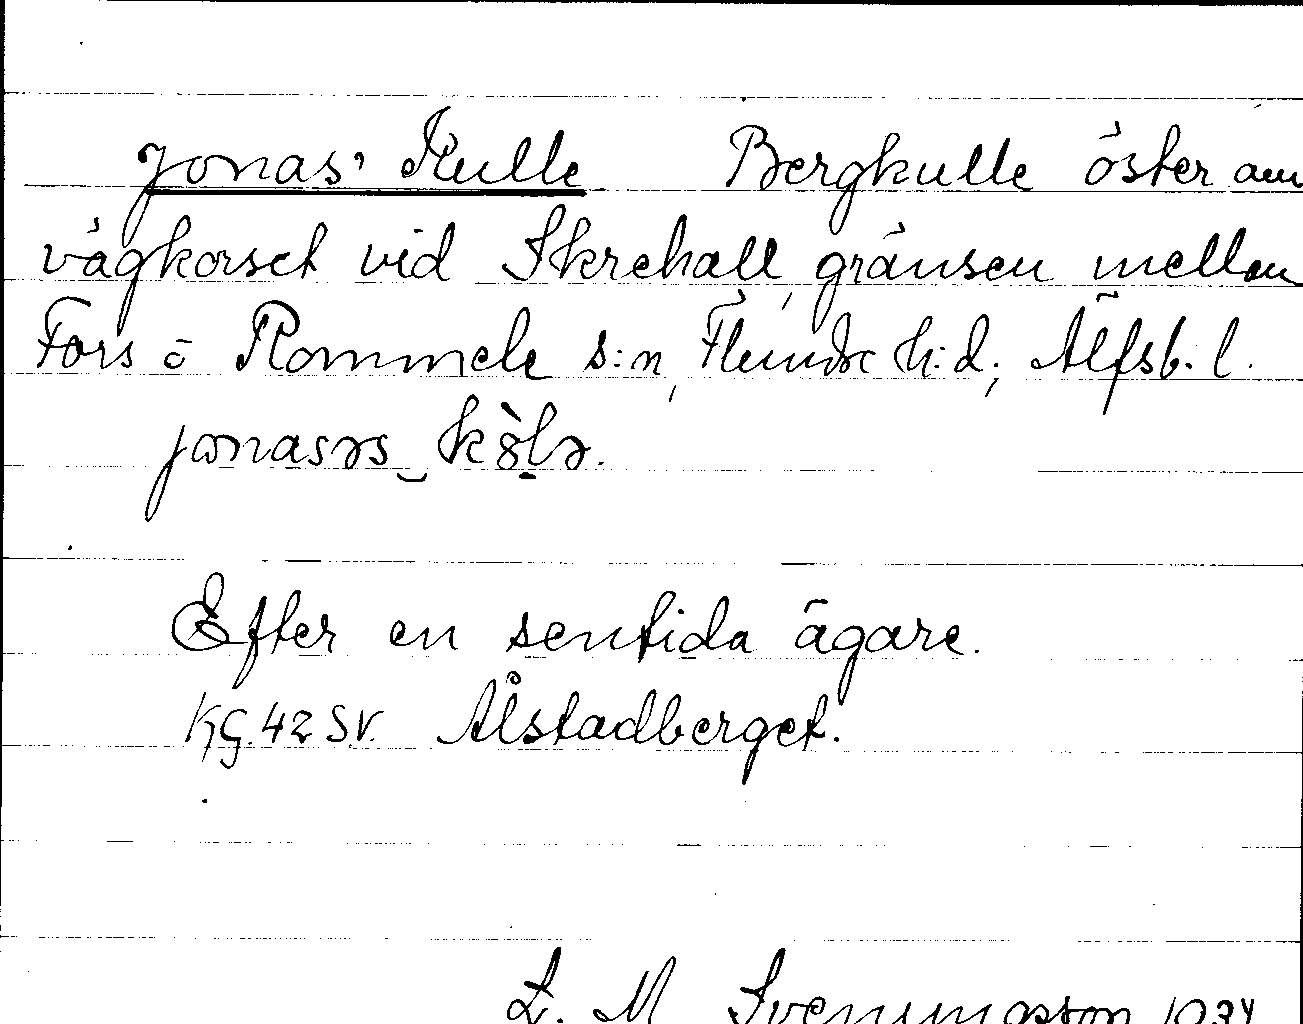 Jonas' Kulle Bergkulle öster om
vägkorset vid Skrehall, gränsen mellan
Fors o Rommele s:n, Flundre h:d, Älfsb. l.
Efter en sentida ägare.
KG. 42 SV. Ålstadberget.
L. M. Svenungsson 1934